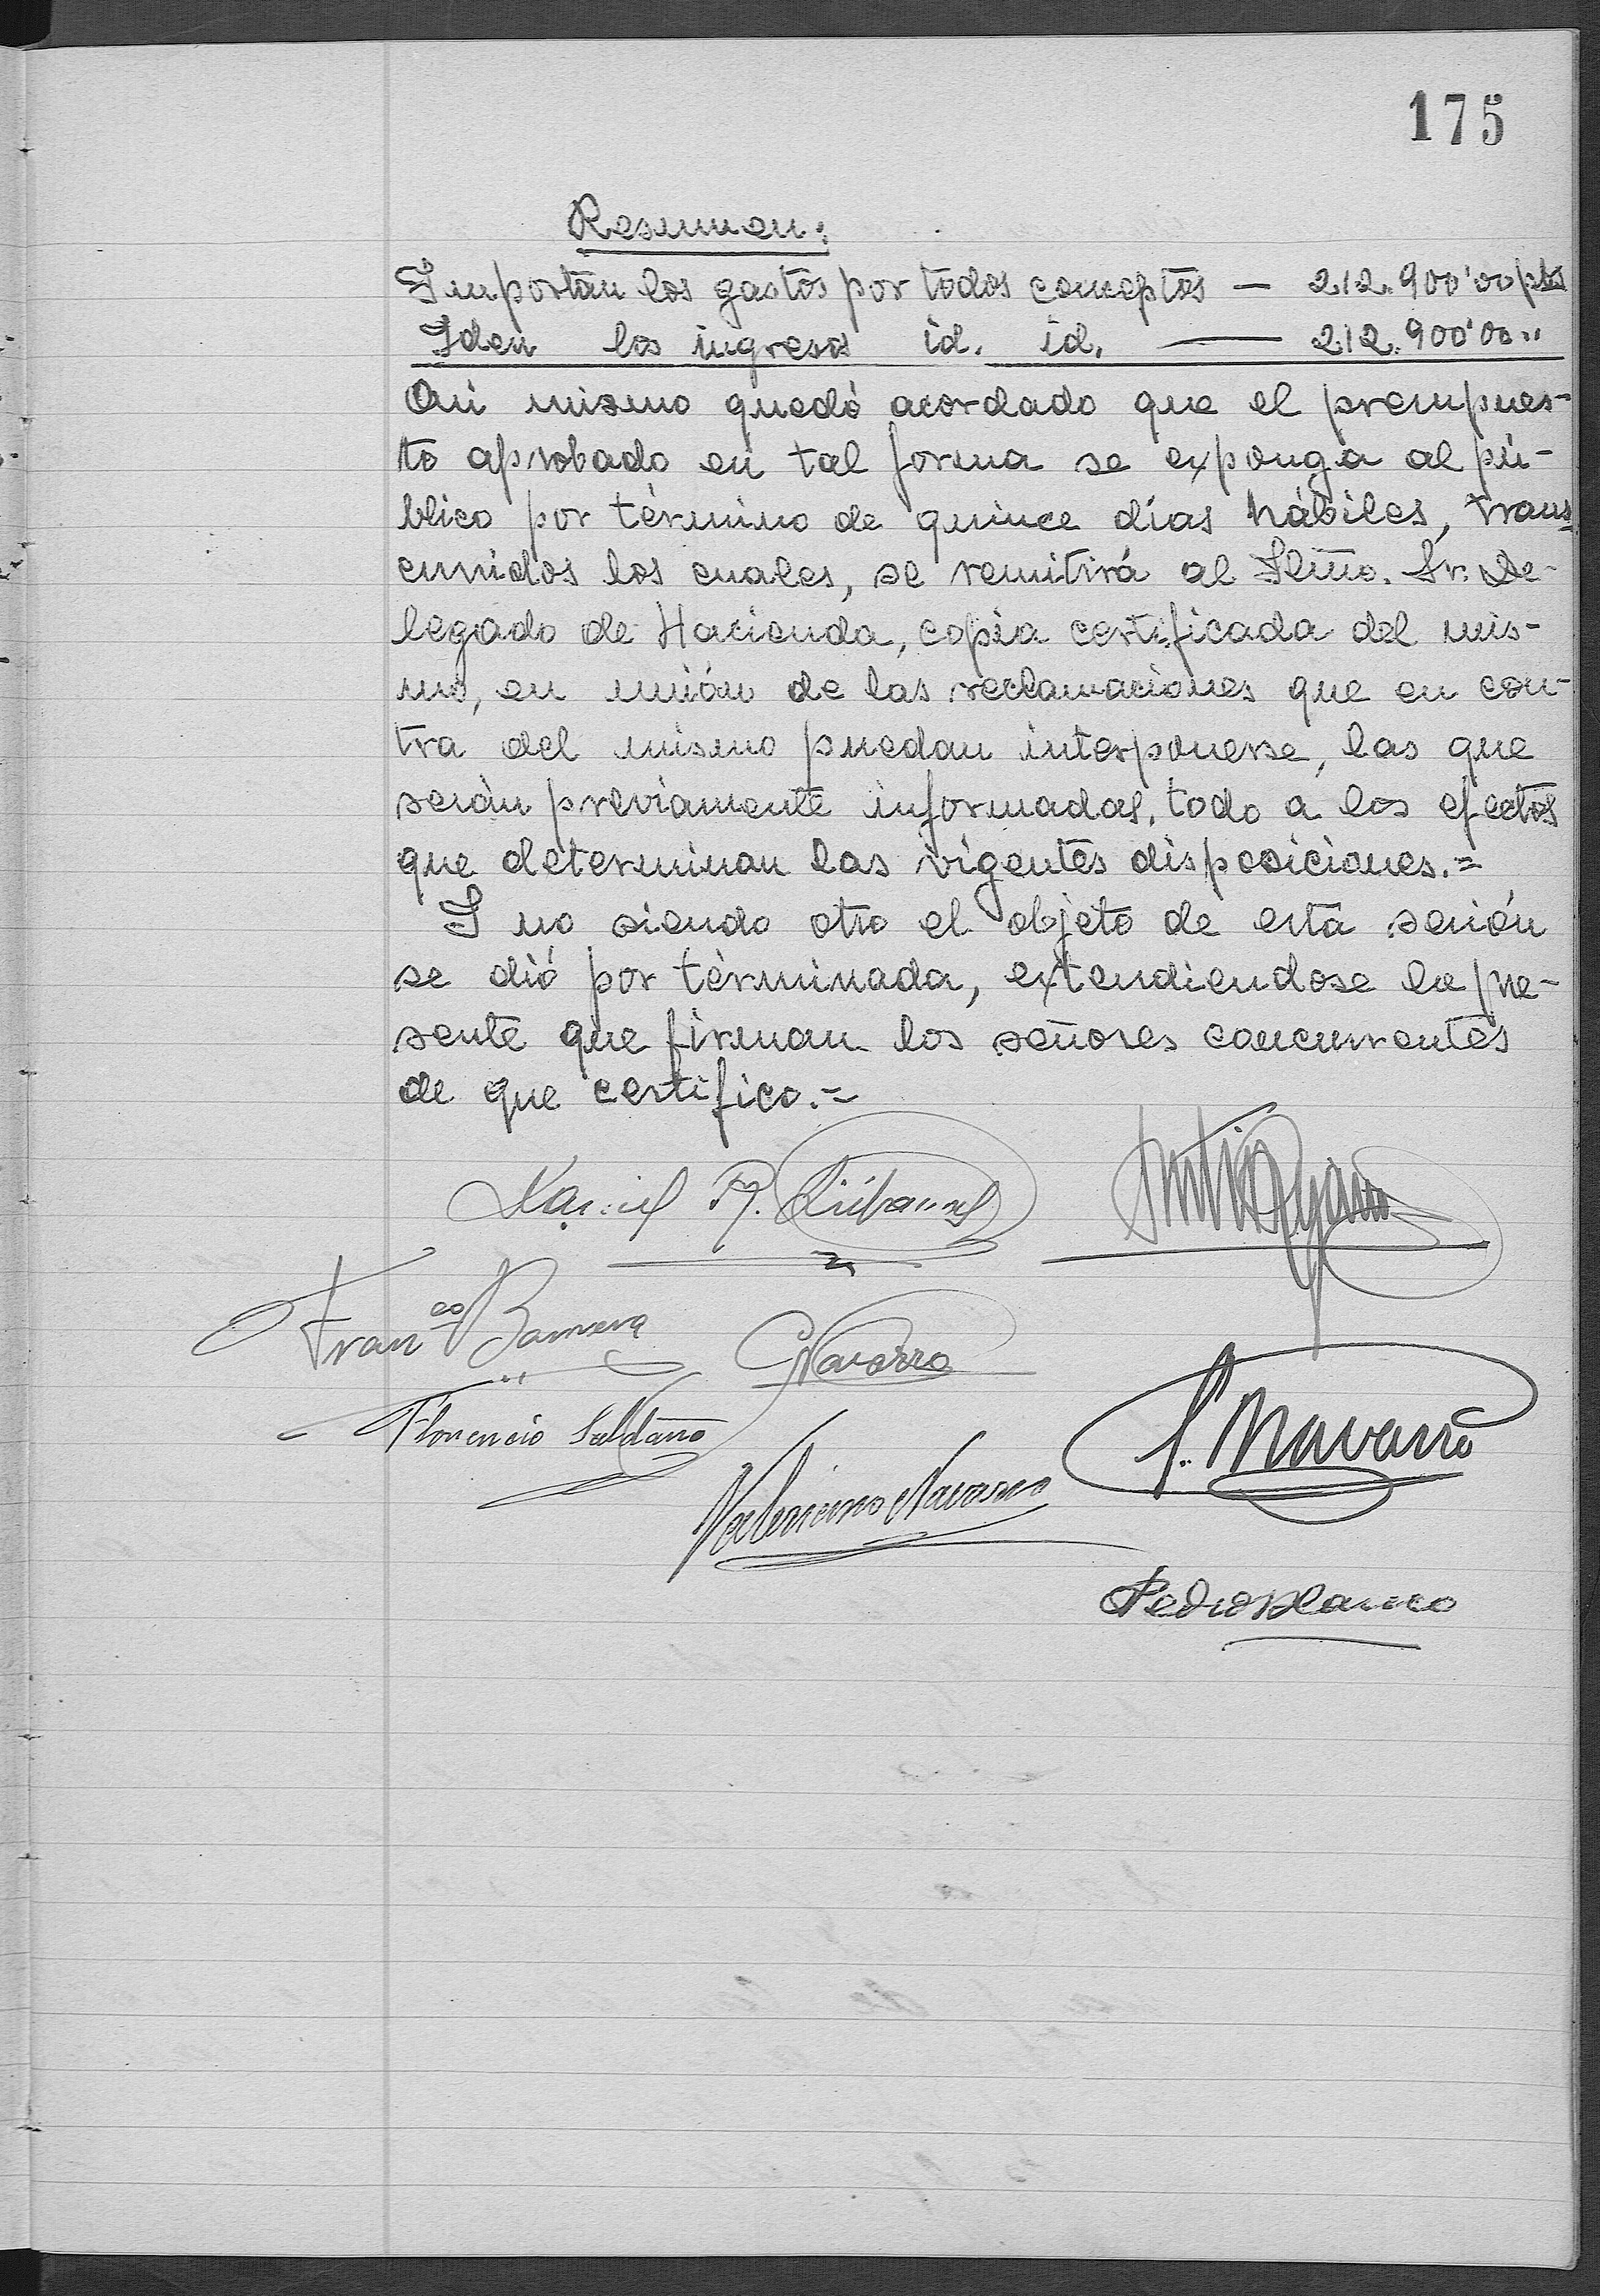 175
Resumen:
Importan los gastos por todos conceptos — 212.900'00 pts
Iden los ingresos id. id. — 212.900'00 "
Asi mismo quedó acordado que el presupues-
to aprobado en tal forma se exponga al pú-
blico por término de quince días hábiles, trans-
curridos los cuales, se remitirá al Iltmo. Sr. De-
legado de Hacienda, copia certificada del mis-
mo, en unión de las reclamaciones que en con-
tra del mismo puedan interponerse, las que
serán previamente informadas, todo a los efectos
que determinan las vigentes disposiciones.=
I no siendo otro el objeto de esta sesión
se dió por términada, extendiendose la pre-
sente que firman los señores concurrentes
de que certifico.=
Fran co
Navarro
Florencio Saldaña
S. Navarro
Valeriano Navarro
Pedro Blanco